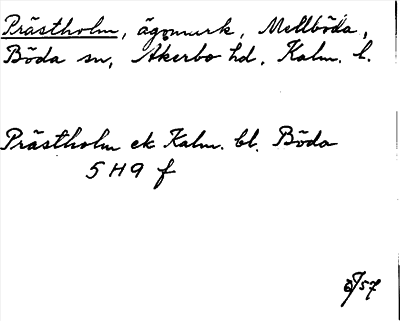 Prästholm, ägomark, Mellböda,
Böda sn, Åkerbo hd, Kalm. l.
Prästholm ek Kalm. bl. Böda
5 H 9 f